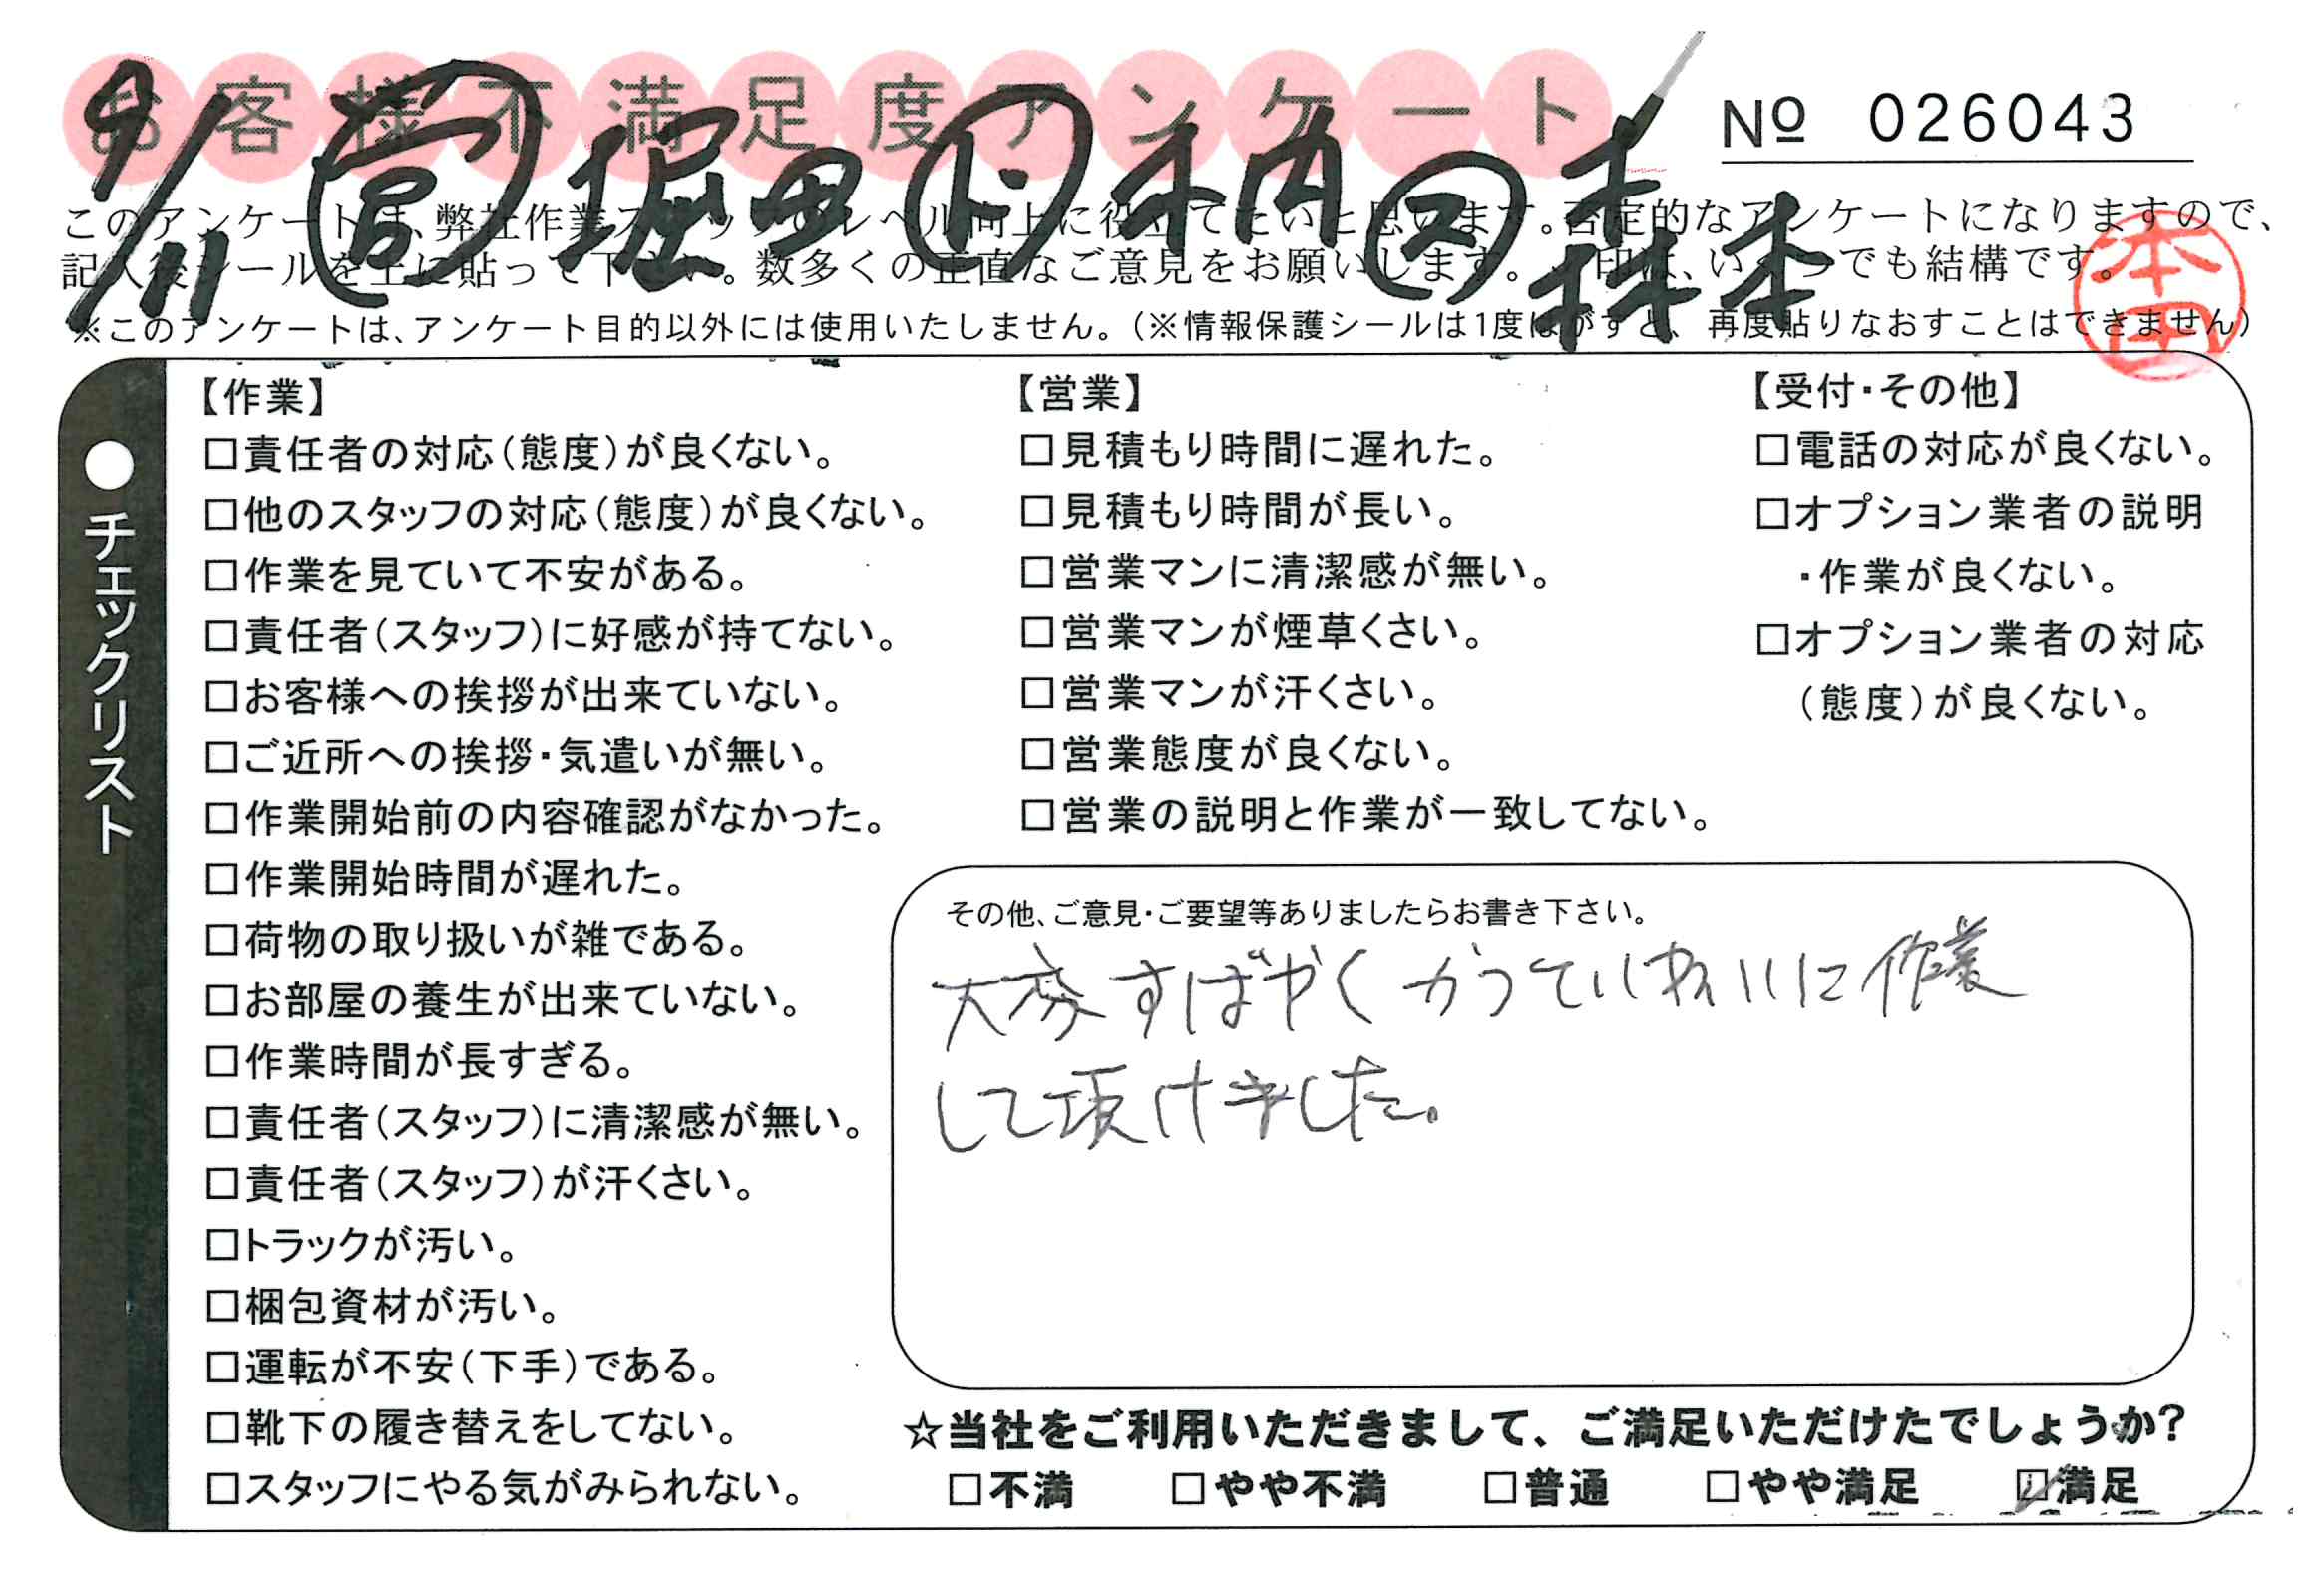 お客様不満足度アンケート
№ 026043
9/11 営 堀田 ト 柄 ス 森 林本
このアンケートは、弊社作業スタッフのレベル向上に役立てたいと思います。否定的なアンケートになりますので、
記入後シールを上に貼って下さい。数多くの正直なご意見をお願いします。✓印は、いくつでも結構です。
本田
※このアンケートは、アンケート目的以外には使用いたしません。(※情報保護シールは1度はがすと、再度貼りなおすことはできません)
●チェックリスト
【作業】
□責任者の対応(態度)が良くない。
□他のスタッフの対応(態度)が良くない。
□作業を見ていて不安がある。
□責任者(スタッフ)に好感が持てない。
□お客様への挨拶が出来ていない。
□ご近所への挨拶・気遣いが無い。
□作業開始前の内容確認がなかった。
□作業開始時間が遅れた。
□荷物の取り扱いが雑である。
□お部屋の養生が出来ていない。
□作業時間が長すぎる。
□責任者(スタッフ)に清潔感が無い。
□責任者(スタッフ)が汗くさい。
□トラックが汚い。
□梱包資材が汚い。
□運転が不安(下手)である。
□靴下の履き替えをしてない。
□スタッフにやる気がみられない。
【営業】
□見積もり時間に遅れた。
□見積もり時間が長い。
□営業マンに清潔感が無い。
□営業マンが煙草くさい。
□営業マンが汗くさい。
□営業態度が良くない。
□営業の説明と作業が一致してない。
【受付・その他】
□電話の対応が良くない。
□オプション業者の説明
・作業が良くない。
□オプション業者の対応
(態度)が良くない。
その他、ご意見・ご要望等ありましたらお書き下さい。
大変すばやくかつていねいに作業
して頂けました。
☆当社をご利用いただきまして、ご満足いただけたでしょうか?
□不満 □やや不満 □普通 □やや満足 ☑満足